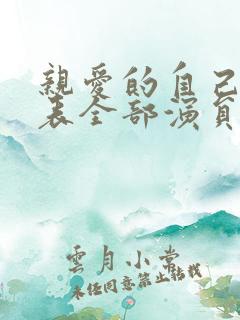 親愛的自己
表全部演員
雲月小棠
未經同意禁止轉載